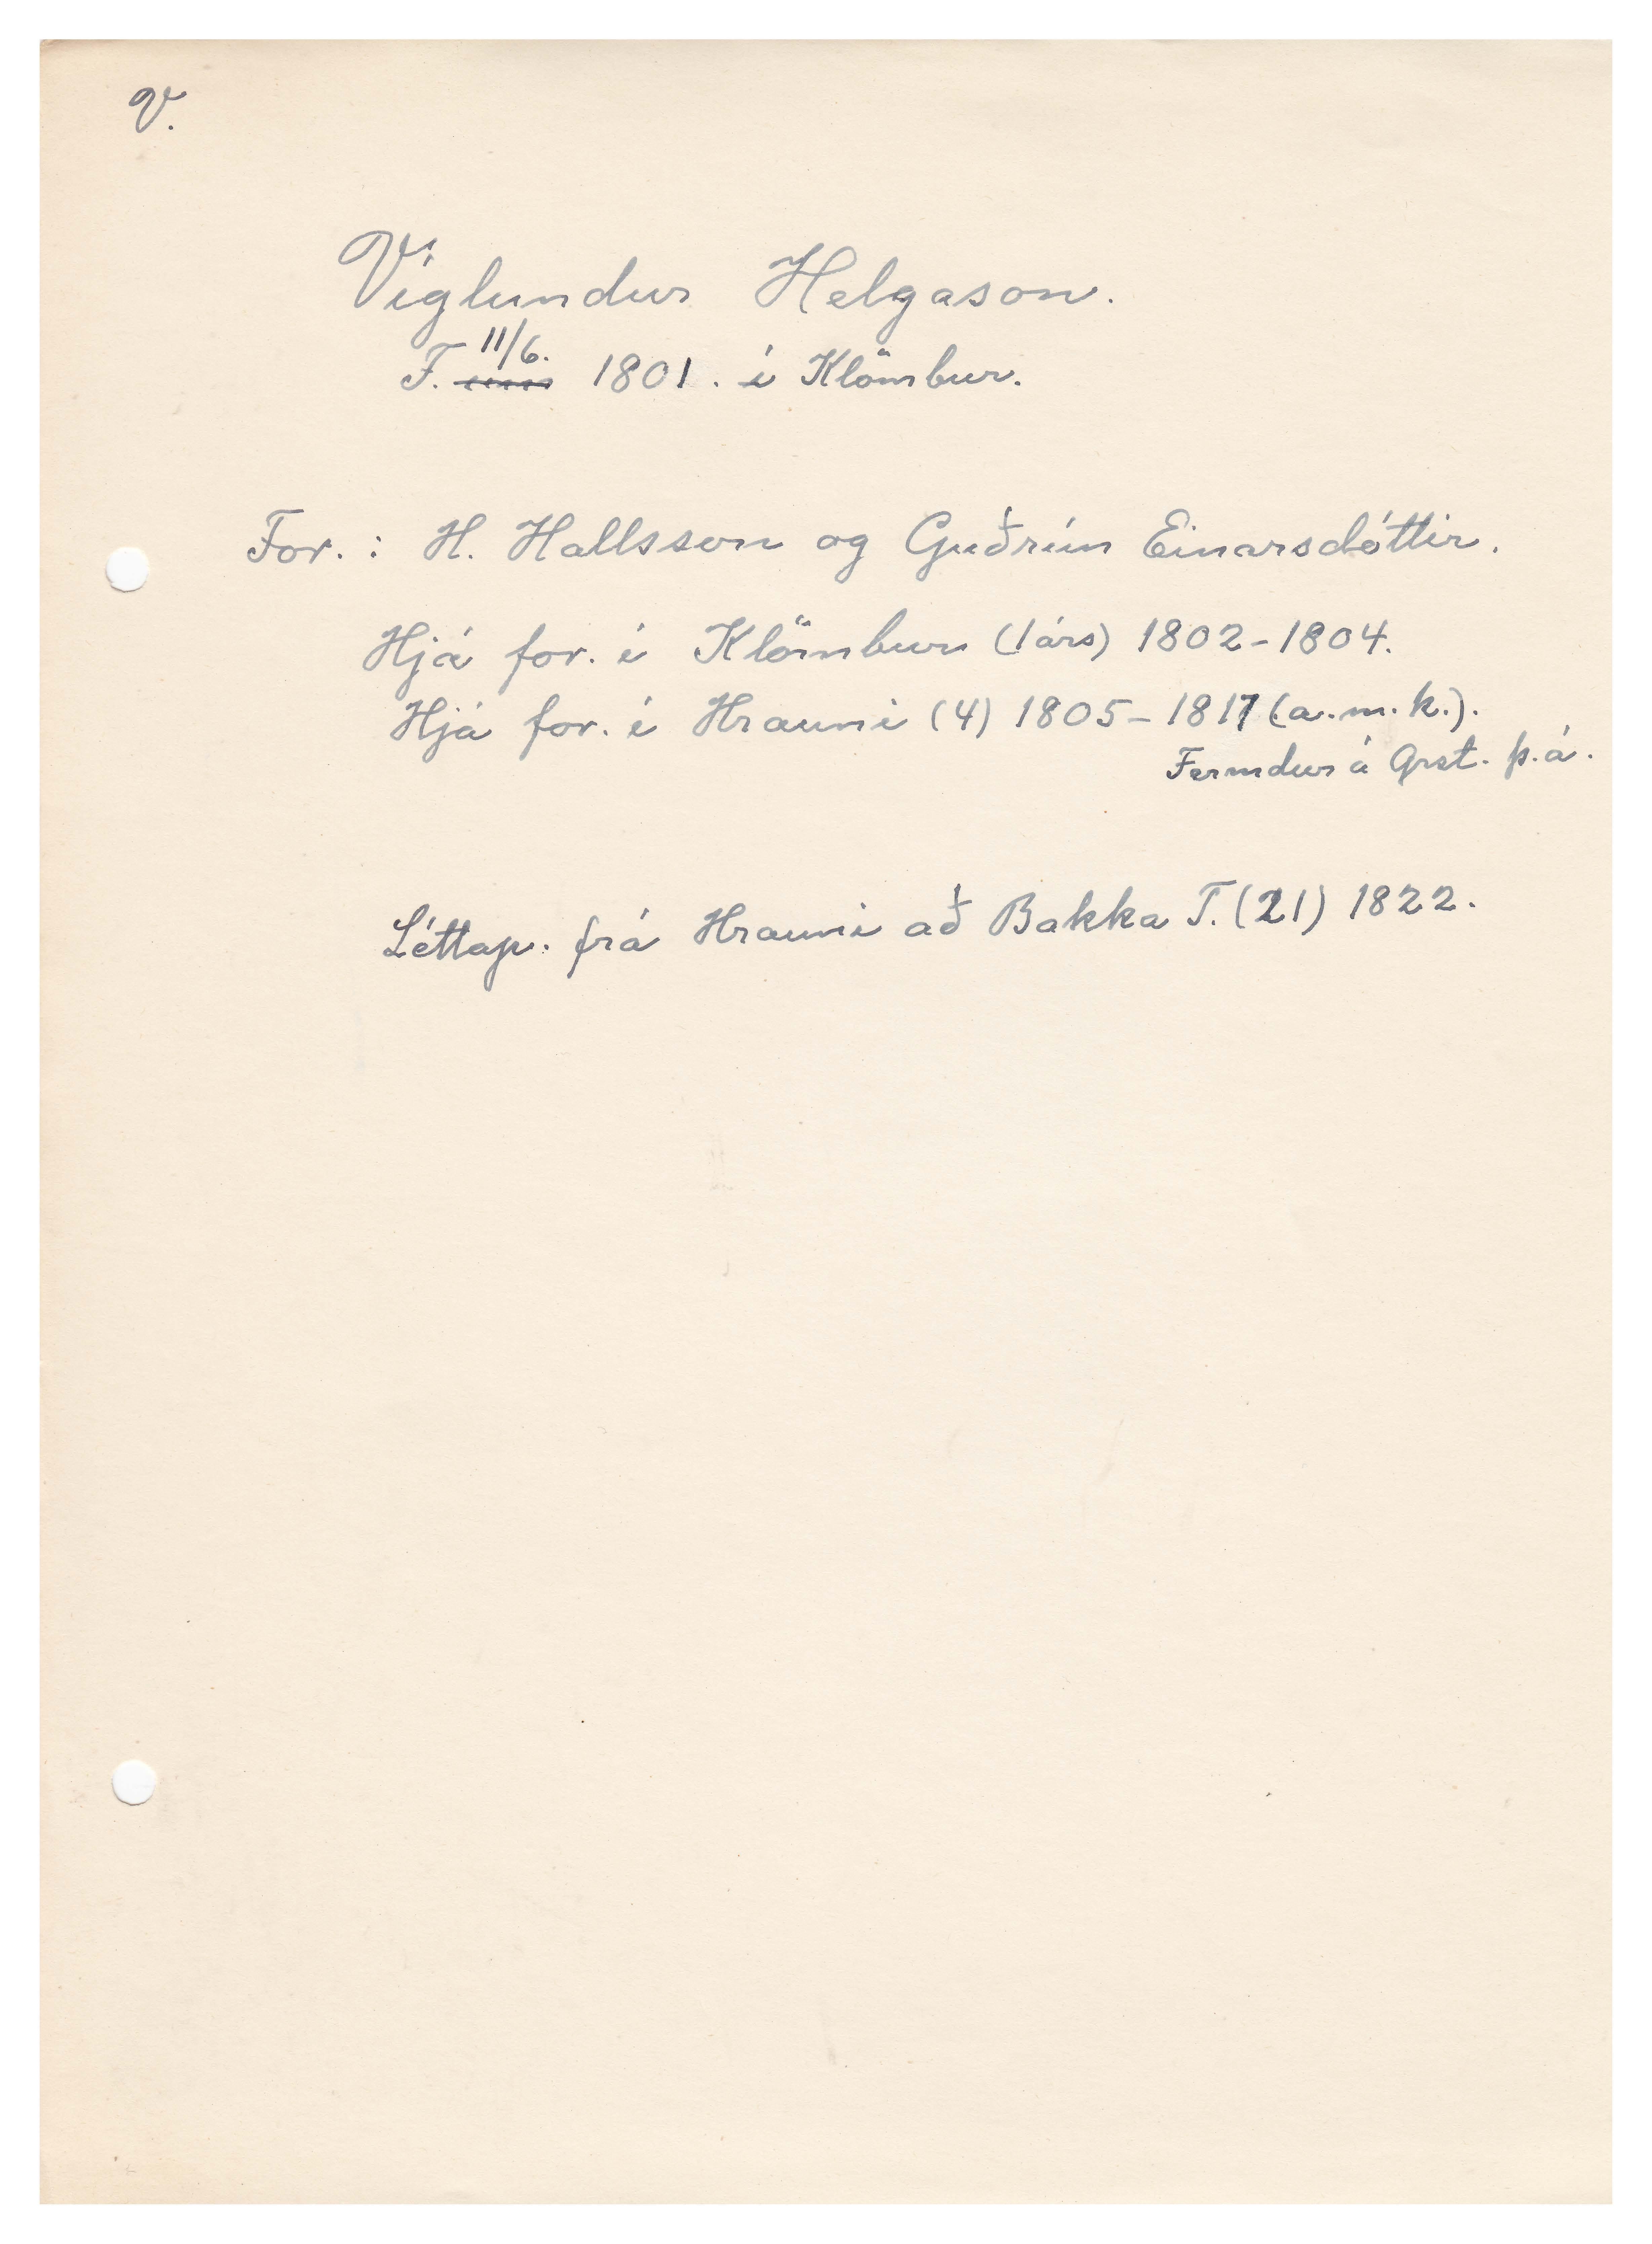 V.
Víglundur Helgason.
11/6.
F. 1801. í Klömbur.
For.: H. Hallsson og Guðrún Einarsdóttir.
Hjá for. í Klömbur (1árs) 1802-1804.
Hjá for. í Hrauni (4) 1805-1817 (a.m.k.).
Fermdur á Grst. þ.á.
Léttap. frá Hrauni að Bakka T. (21) 1822.